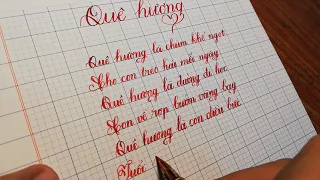 Quê hương
Quê hương là chùm khế ngọt
Cho con trèo hái mỗi ngày
Quê hương là đường đi học
Con về rợp bướm vàng bay
Quê hương là con diều biếc
Tuổi